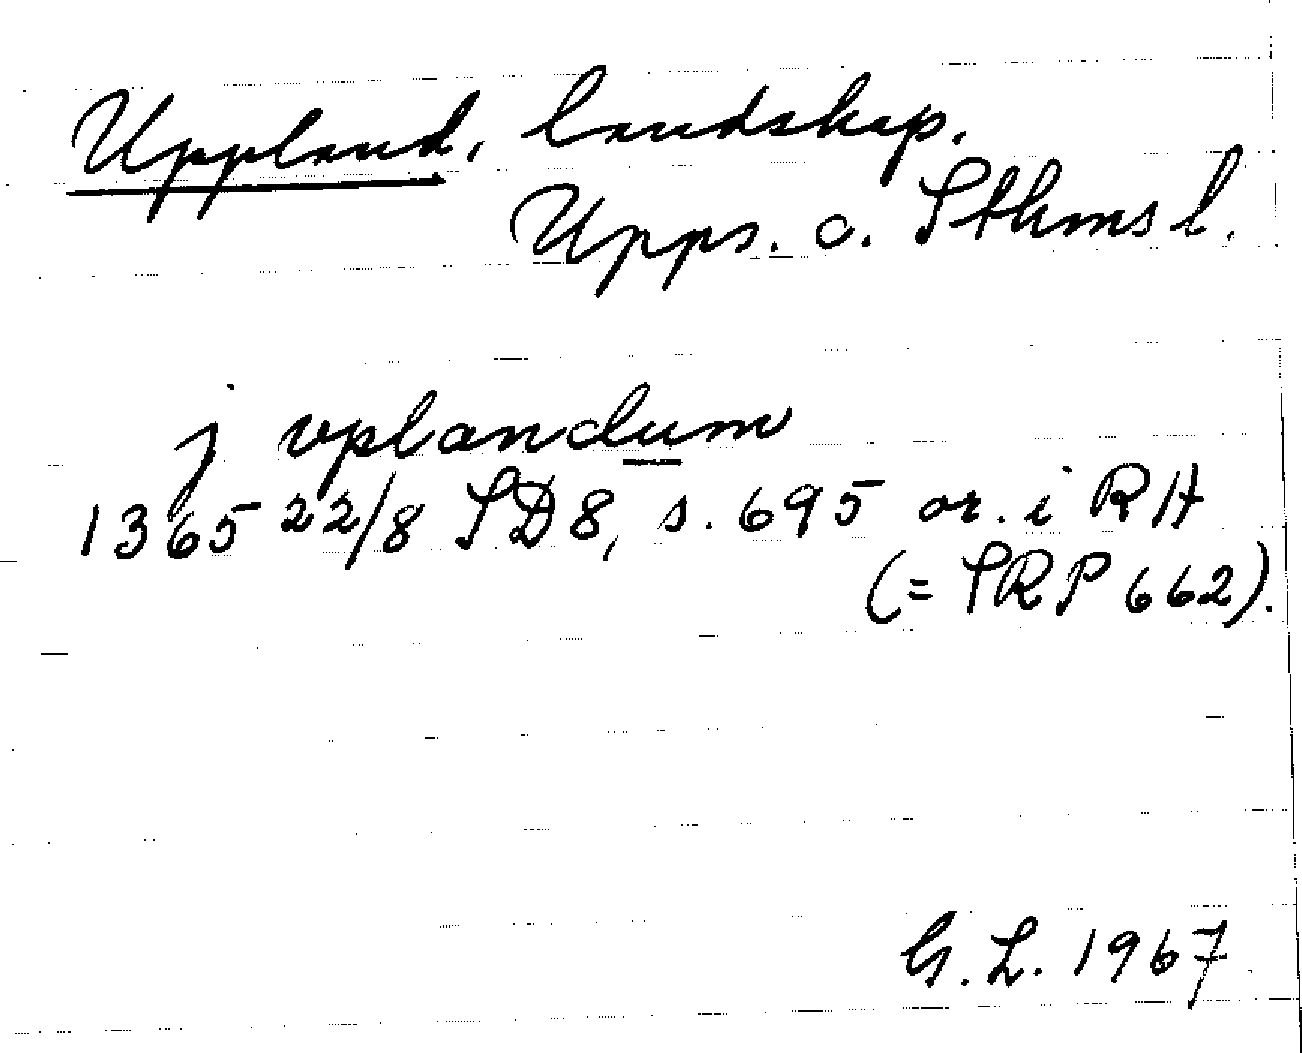 Uppland, landskap.
Upps. o. Sthms l.
j vplandum
1365 22/8 SD8, s. 695 or. i RA
(= SRP 662).
G. L. 1967